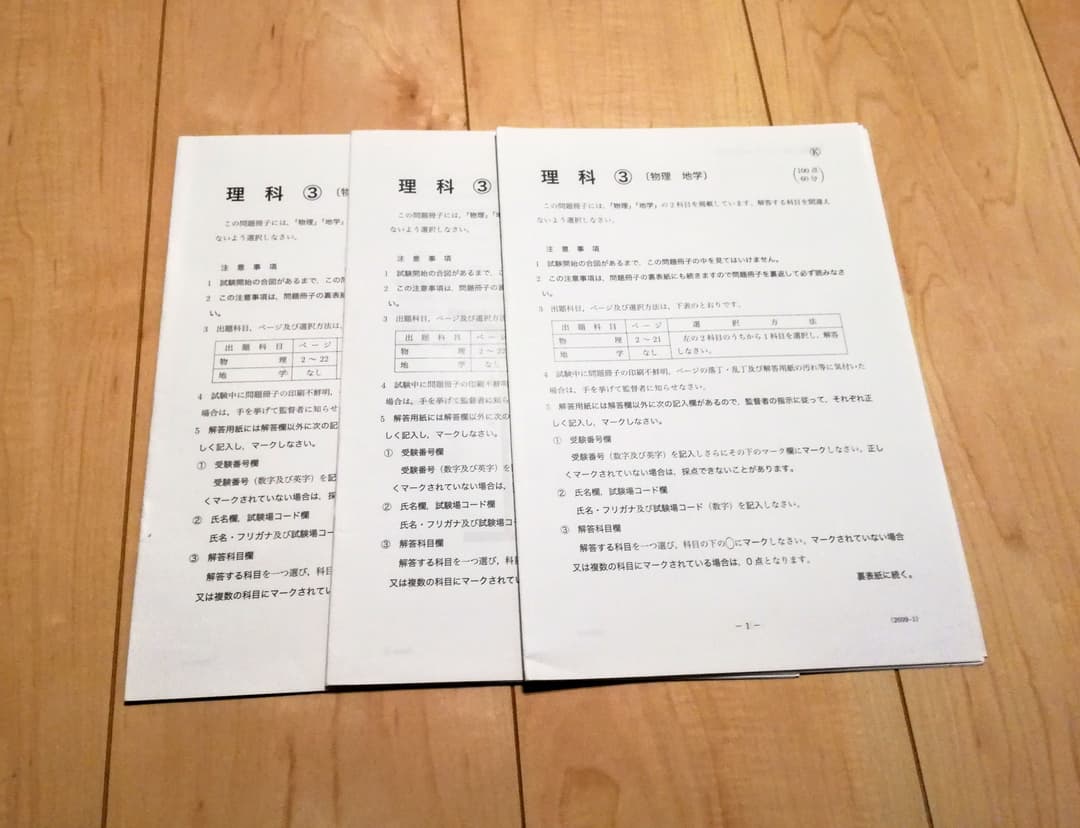 理 科 ③ (物
この問題冊子には、「物理」「地学」
ないよう選択しなさい。
注 意 事 項
1 試験開始の合図があるまで、この問
2 この注意事項は、問題冊子の裏表紙
い。
3 出題科目、ページ及び選択方法は、
出 題 科 目 ページ
物 理 2〜22
地 学 なし
4 試験中に問題冊子の印刷不鮮明、
場合は、手を挙げて監督者に知らせ
5 解答用紙には解答欄以外に次の記
しく記入し、マークしなさい。
① 受験番号欄
受験番号(数字及び英字)を記
くマークされていない場合は、採
② 氏名欄、試験場コード欄
氏名・フリガナ及び試験場コー
③ 解答科目欄
解答する科目を一つ選び、科目
又は複数の科目にマークされてい
理 科 ③
この問題冊子には、「物理」「地
ないよう選択しなさい。
注 意 事 項
1 試験開始の合図があるまで、こ
2 この注意事項は、問題冊子の
い。
3 出題科目、ページ及び選択方
出 題 科 目 ページ
物 理 2〜22
地 学 なし
4 試験中に問題冊子の印刷不鮮
場合は、手を挙げて監督者に知
5 解答用紙には解答欄以外に次の
しく記入し、マークしなさい。
① 受験番号欄
受験番号(数字及び英字)を
くマークされていない場合は、
② 氏名欄、試験場コード欄
氏名・フリガナ及び試験場コ
③ 解答科目欄
解答する科目を一つ選び、
又は複数の科目にマークされ
Ⓚ
理 科 ③ 〔物理 地学〕
(100点 60分)
この問題冊子には、「物理」「地学」の2科目を掲載しています。解答する科目を間違え
ないよう選択しなさい。
注 意 事 項
1 試験開始の合図があるまで、この問題冊子の中を見てはいけません。
2 この注意事項は、問題冊子の裏表紙にも続きますので問題冊子を裏返して必ず読みなさ
い。
3 出題科目、ページ及び選択方法は、下表のとおりです。
出 題 科 目 ページ 選 択 方 法
物 理 2〜21 左の2科目のうちから1科目を選択し、解答
地 学 なし しなさい。
4 試験中に問題冊子の印刷不鮮明、ページの落丁・乱丁及び解答用紙の汚れ等に気付いた
場合は、手を挙げて監督者に知らせなさい。
5 解答用紙には解答欄以外に次の記入欄があるので、監督者の指示に従って、それぞれ正
しく記入し、マークしなさい。
① 受験番号欄
受験番号(数字及び英字)を記入しさらにその下のマーク欄にマークしなさい。正し
くマークされていない場合は、採点できないことがあります。
② 氏名欄、試験場コード欄
氏名・フリガナ及び試験場コード(数字)を記入しなさい。
③ 解答科目欄
解答する科目を一つ選び、科目の下の◯にマークしなさい。マークされていない場合
又は複数の科目にマークされている場合は、0点となります。
裏表紙に続く。
−1−